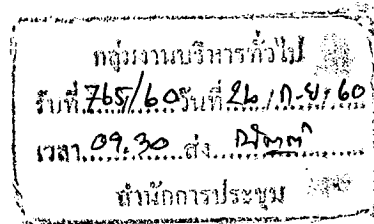 กลุ่มงานบริหารทั่วไป
รับที่ 765/60 วันที่ 26 / ก.ย. 60
เวลา 09.30 ส่ง
สำนักการประชุม